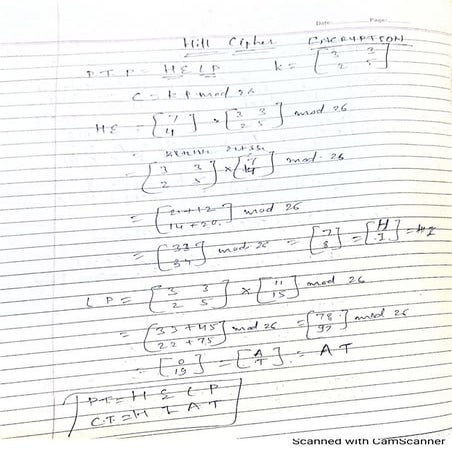 Date: Page:
Hill Cipher ENCRYPTION
P.T. P = HELP k = [3 3
2 5]
C = k P mod 26
HE = [7
4] × [3 3
2 5] mod 26
= [3 3
2 5] × [7
4] mod 26
= [21+12
14+20] mod 26
= [33
34] mod 26 = [7
8] = [H
I] = HI
LP = [3 3
2 5] × [11
15] mod 26
= [33+45
22+75] mod 26 = [78
97] mod 26
= [0
19] = [A
T] = AT
PT = H E L P
C.T. = H I A T
Scanned with CamScanner